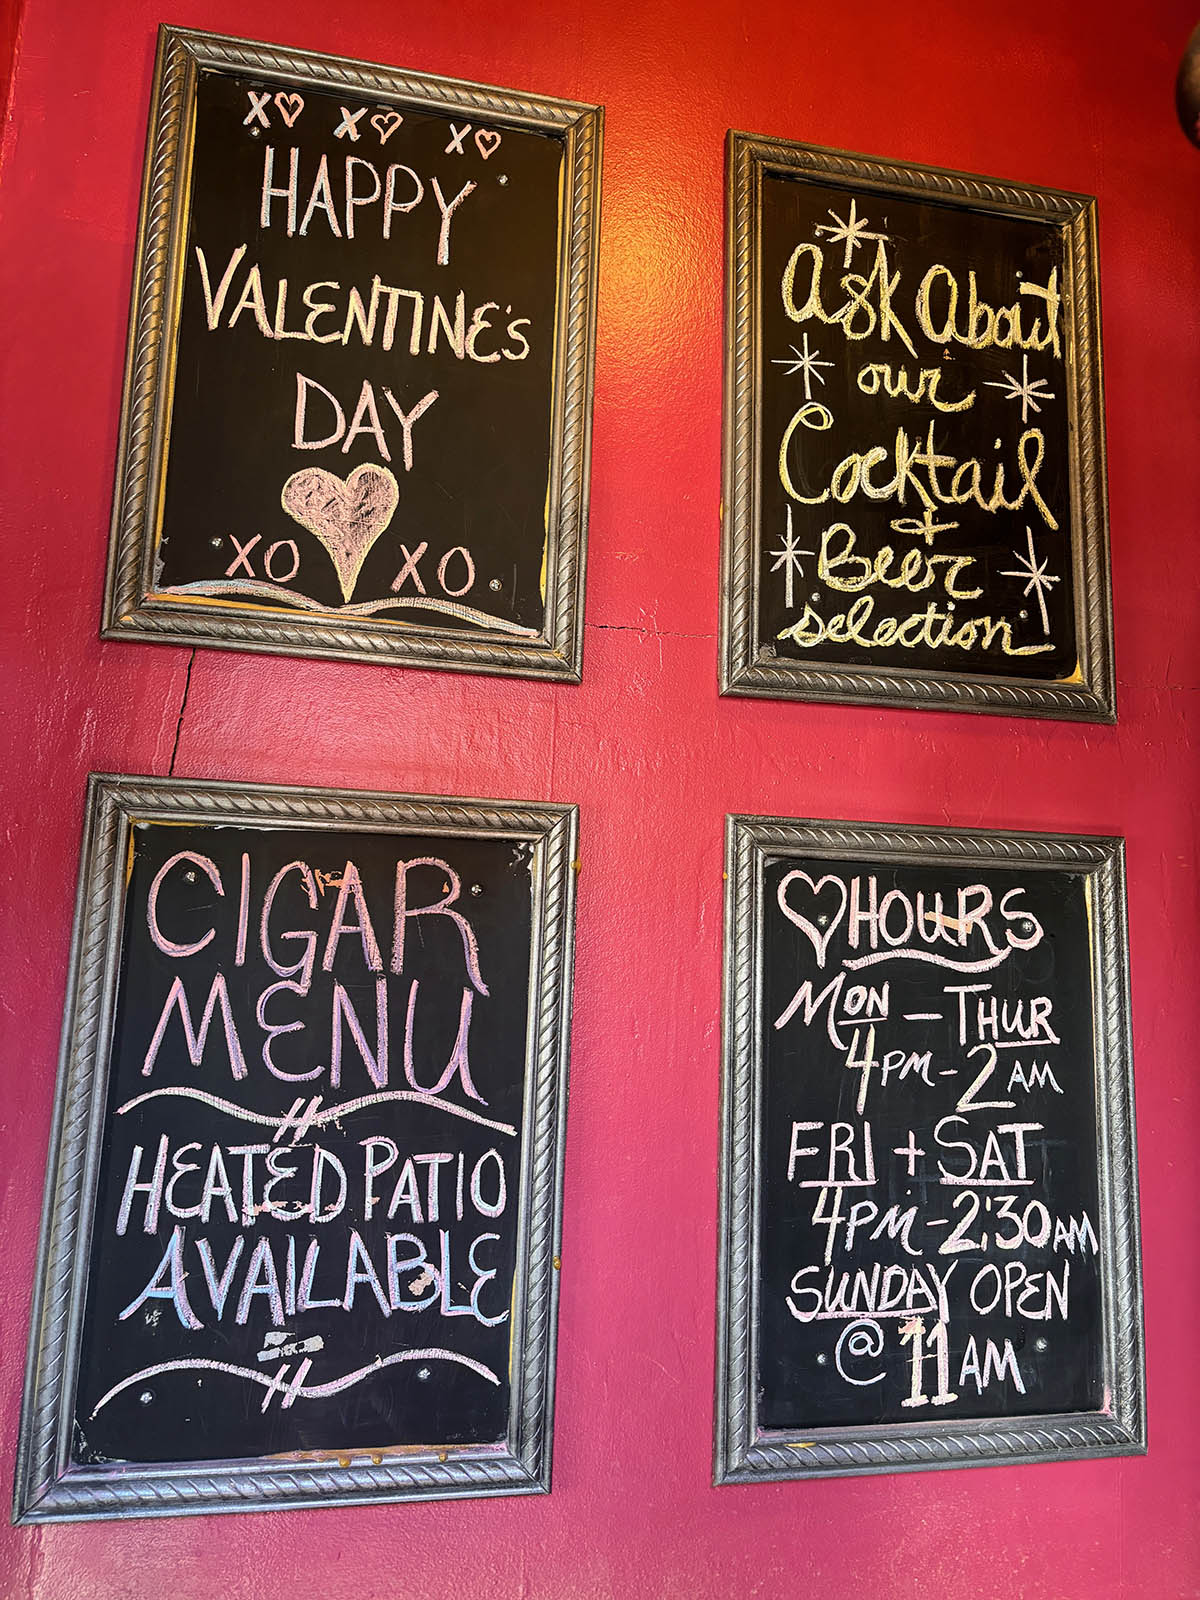 X♡ X♡ X♡
HAPPY
VALENTINE'S
DAY
XO XO
Ask About
our
Cocktail
+
Beer
selection
CIGAR
MENU
HEATED PATIO
AVAILABLE
♡HOURS
MON – THUR
4PM – 2AM
FRI + SAT
4PM – 2:30AM
SUNDAY OPEN
@ 11AM